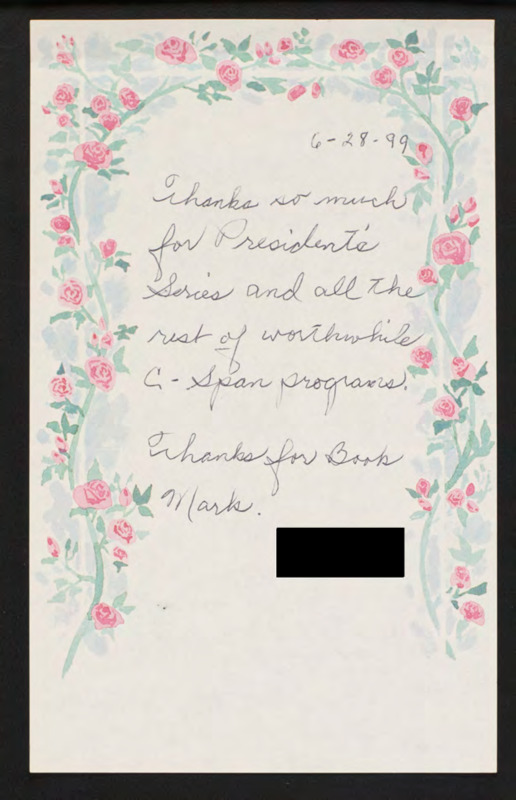 6-28-99
Thanks so much
for President's
Series and all the
rest of worthwhile
C-Span programs.
Thanks for Book
Mark.